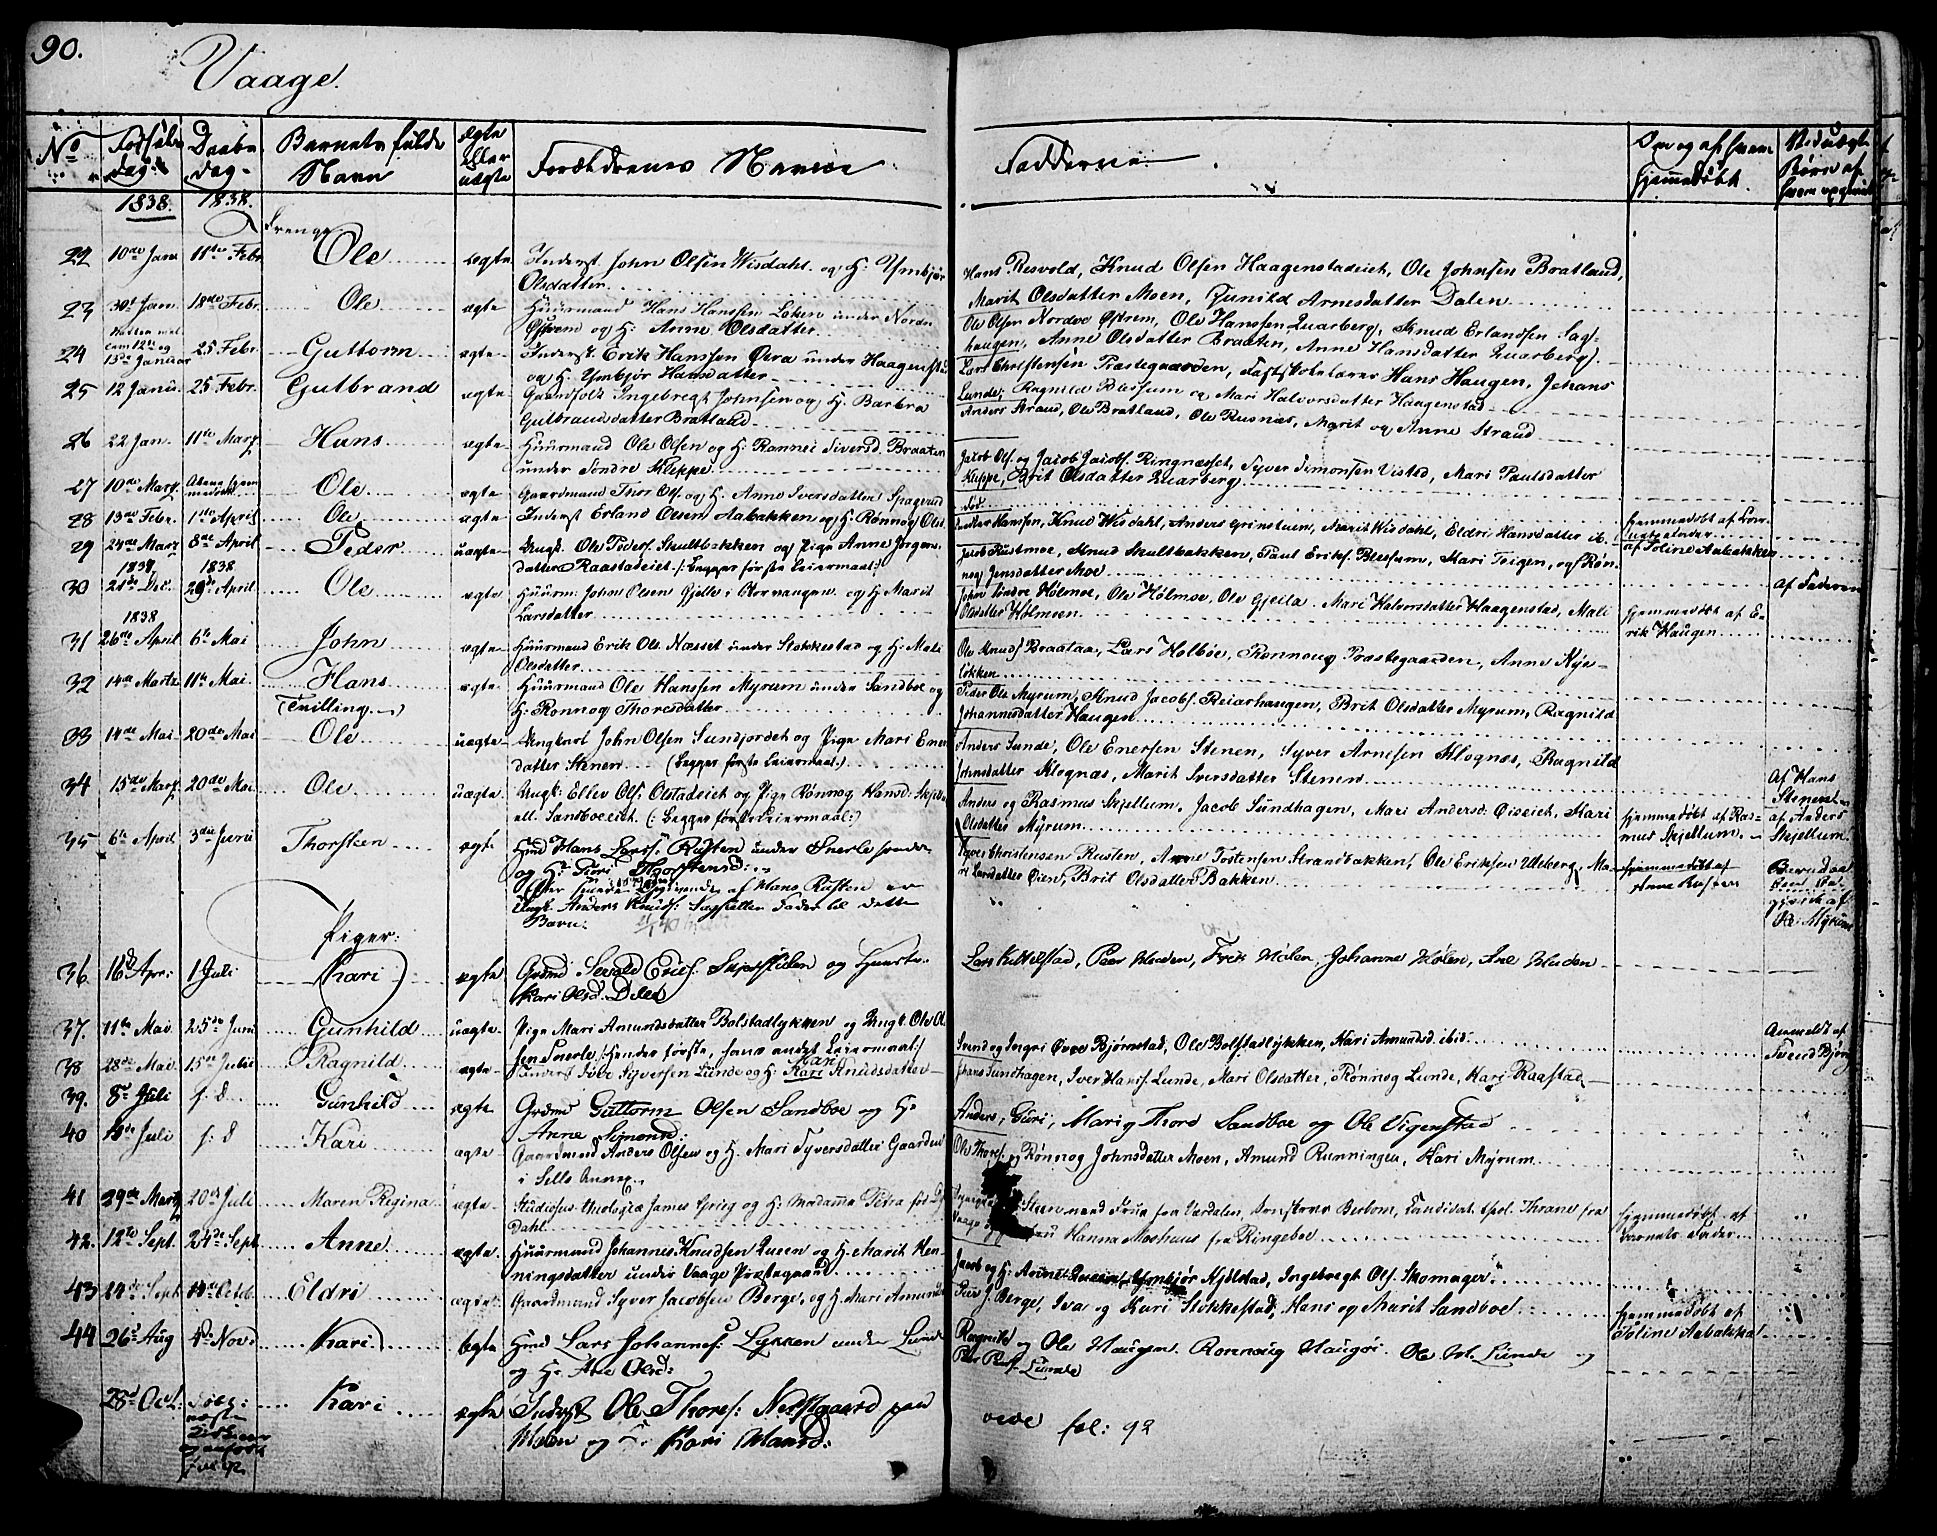 90.
Vaage.
No
Fødsels
dag
Daabs
dag.
Barnets fulde
Navn
ægte
eller
uægte
Forældrenes Navne
Fadderne
Om og af hvem
hjemmedøbt.
Ved uægte
Børn af
hvem
1838. 1838.
Drenge
22 10de Jan 11te Febr Ole ægte Inderst John Olsen Wisdahl og H. Ymbjør
Olsdatter
Hans Resvold, Knud Olsen Haagenstadeiet, Ole Johnsen Bratland,
Marit Olsdatter Moen, Gunild Arnesdatter Dalen
23 30t Jan. 18de Febr. Ole ægte Huurmand Hans Hanssen Løken under Nordre
Øfrem og H. Anne Olsdatter
Ole Olsen Nordre Øfrem, Ole Hanssen Quarberg, Knud Erlandsen Sag-
haugen, Anne Olsdatter Braaten, Anne Hansdatter Quarberg
Natten mel
lem 12te og
24 13de Januar 25 Febr. Guttorm ægte Inderst. Erik Hanssen Øvra under Haagenstad
og H. Ymbjør Hansdatter
Lars Christensen Præstegaarden, Fastskolelærer Hans Haugen, Johans
Lunde, Ragnild Blessum og Mari Halvorsdatter Haagenstad
25 12 Janu. 25 Febr. Gutbrand ægte Gaardfolk Ingebregt Johnsen og H. Barbra
Gutbrandsdatter Bratland
Anders Strand, Ole Bratland, Ole Rusnæs, Marit og Anne Strand
26 22 Jan. 11te Marz Hans ægte Huurmand Ole Olsen og H. Rønnei Siversd. Braaten
under Søndre Kleppe
Jacob Ols. og Jacob Jacobs. Ringnæsset, Syver Simonsen Visted, Mari Paulsdatter
Kleppe, Brit Olsdatter Quarberg
27 10de Marz Ole ægte Gaardmand Thor Ols. og H. Anne Iversdatter Spagrud
28 13de Febr. 1ste April Ole ægte Inderst Erland Olsen Aabakken og H. Rønnog Ols.
Hansen, Knud Wisdahl, Anders Grinstuen, Marit Wisdahl, Eldri Hansdatter ib.
hjemmedøbt
af Toline Aabakken
29 24de Marz 8de April Peder uægte Ungk. Ole Peders. Skultbakken og Pige Anne Jørgens-
datter Raastadeiet /: Begges første Leiermaal:/
Jacob Rustmoe, Knud Skultbakken, Paul Eriks. Blessum, Mari Teigen, og Røn-
nog Jensdatter Moe
af Faderen
1837 1838
30 21de Dec. 29de April Ole ægte Huurm. John Olsen Gjelle i Norvangen og H. Marit
Larsdatter
John Søndre Holmoe, Ole Holmoe, Ole Gjeila, Mari Halvorsdatter Haagenstad, Mali
Olsdatter Holmoen
hjemmedøbt af E-
rik Haugen
1838
31 26de April 6te Mai John ægte Huurmand Erik Ols. Næsset under Stokkestad og H. Mali
Olsdatter
Ole Knuds. Braataa, Lars Holbøe, Rønnoug Præstegaarden, Anne Nyse-
løkken
32 14de Martz 11te Mai Hans ægte Huurmand Ole Hanssen Myrum under Sandboe og
(Tvilling) H. Rønnog Thoresdatter
Peder Ole Myrum, Knud Jacobs. Reiarhaugen, Brit Olsdatter Myrum, Ragnild
Johannesdatter Haugen
33 14de Mai 20de Mai Ole uægte Ungkarl John Olsen Sundjordet og Pige Mari Ener-
datter Stenen (Begges første Leiermaal.)
Anders Sunde, Ole Enersen Stenen, Syver Arnesen Klognæs, Ragnild
Johnsdatter Klognæs, Marit Iversdatter Stenen
34 15de Marz 20de Mai Ole uægte Ungk: Ellev Ols. Olstadeiet og Pige Rønnog Hansd. Skjel-
ell. Sandboeeiet (: Begges første Leiermaal:)
Anders og Rasmus Skjellum, Jacob Sundhagen, Mari Andersd: Oiseiet, Kari
Olsdatter Myrum
hjemmedøbt af Ras-
mus Skjellum
Af Hans
Stenerst.
af Anders
Skjellum
35 6te April 3die Juni Thorsten ægte Hmd Hans Lars. Rusten under Snerle søndre
og H: Turi Thorstensd:
af Hans Rusten er
Ungk. Anders Knuds: Sagfallen Fader til dette
Barn.
Syver Christensen Rusten, Anne Tostensen Strandbakken, Ole Eriksen Uleberg, Ma-
ri Larsdatter Øien, Brit Olsdatter Bakken
hjemmedøbt af
Anne Rusten
Piger:
36 16d Apr: 1 Juli Kari ægte Grdmd Sevald Eriks. Skjærstilen og Hustr:
Kari Olsd. Dele
Lars Kittelstad, Peer Bladen, Frik Holen, Johanne Holen, Ane Bladen
37. 11te Mai 25de Juni Gunhild uægte Pige Mari Amundsdatter Bolstadlykken og Ungk. Ole Ol-
sen Snerle /: Hendes første, hans andet Leiermaal:/
Svend og Ingri Øvre Bjørnstad, Ole Bolstadlykken, Kari Amundsd. ibid.
Anmeldt af
Svend Bjørn
38 28de Mai 15de Julii Ragnild ægte Inderst Iver Syversen Lunde og H. Kari Knudsdatter
Johans Sundhagen, Iver Hans. Lunde, Mari Olsdatter, Rønnog Lunde, Kari Raastad
39. 8de Juli s. D Gunhild ægte Grdmd Guttorm Olsen Sandboe og H:
Anne Simensd:
Anders, Guri, Mari og Thord Sandboe og Ole Vigenstad
40 Juli s: D Kari ægte Gaardmand Anders Olsen og H. Mari Syversdatter Gaarden
i Sells Annex.
Ole Thores: og Rønnog Johnsdatter Moen, Amund Runningen, Kari Myrum
41 29de Martz 20de Juli Maren Regina ægte Studiosus theologiæ James Grieg og H: Madame Petra
Dahl
Frue fra Værdalen, Candidat theol. Thrane fra
Vaage og Hanna Moshuus fra Ringeboe
hjemmedøbt af
Barnets Fader
42. 12te Sept. 24de Sept Anne ægte Huurmand Johannes Knudsen Queen og H. Marit Hen-
ningsdatter under Vaage Præstegaard
Jacob og H: Anne Queen, Ymbjør Kjelstad, Ingebregt Ols. Skomager
43 24de Sept. 14de Octob. Eldri ægte Gaardmand Syver Jacobsen Berge, og H. Mari Amunds
Peer J. Berge, Iva og Kari Stokkestad, Hans og Marit Sandboe
44 26d Aug 4de Nov. Kari ægte Hmd Lars Johannes: Lykken under Lunde
og H: Ane Olsd:
Ragnild og Ole Haugen Rønnoug Haugøi. Ole M. Lunde og
Peer Peers. Lunde
hjemmedøbt af
Toline Aabakken
28d Oct. Døbt:
næste
Kari ægte Inderst Ole Thores: Nedstgaard paa
Holen og H. Kari Hansd:
vide fol: 92